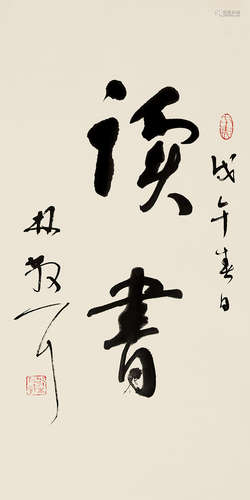 戊午春日
讀書
林散耳